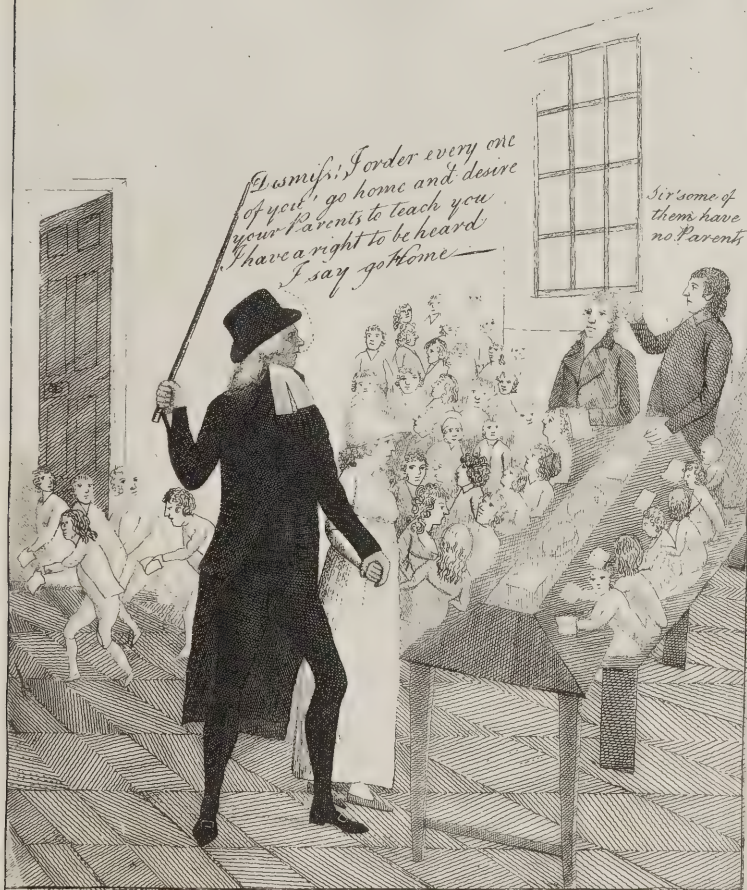 Dismiſs! I order every one
of you! go home and desire
your Parents to teach you
I have a right to be heard
I say go Home —
Sir some of
them have
no Parents